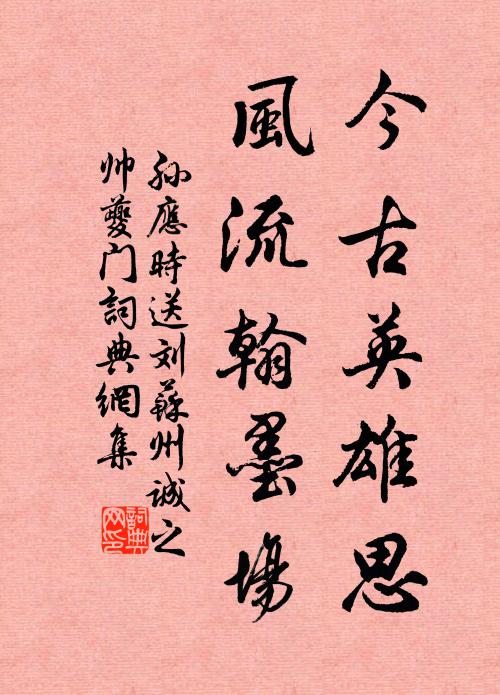 今古英雄思
風流翰墨場
孙應時送刘蘇州诚之
帅夔门詞典網集
詞典网印